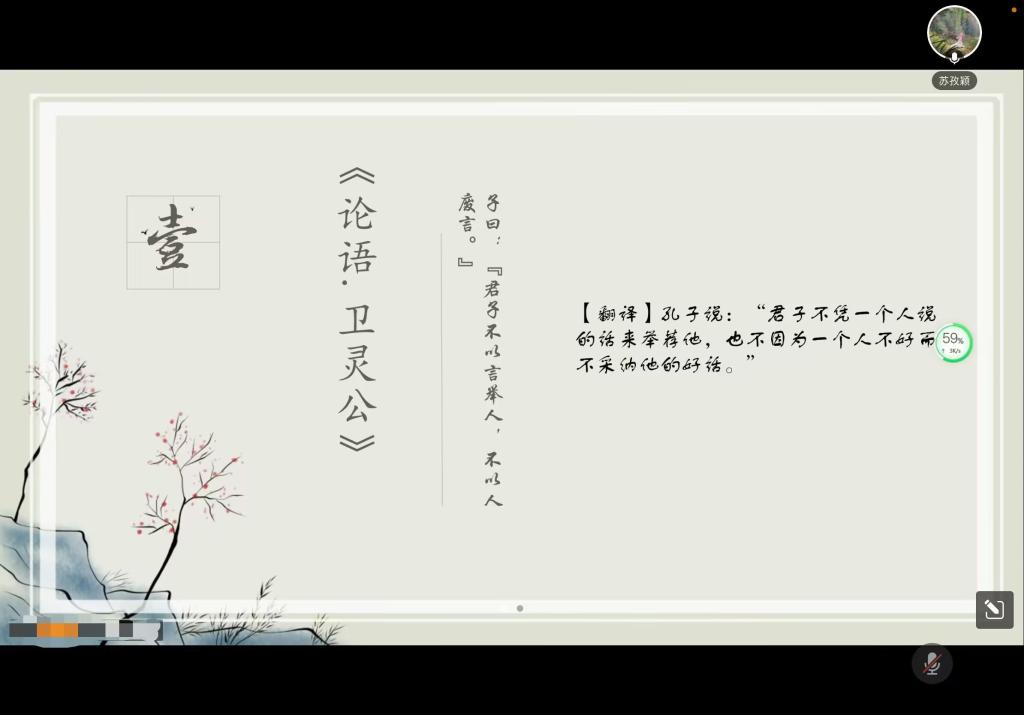 苏孜颖
壹
《论语·卫灵公》
子曰：『君子不以言举人，不以人
废言。』
【翻译】孔子说：“君子不凭一个人说
的话来举荐他，也不因为一个人不好而
不采纳他的好话。”
59%
3K/s